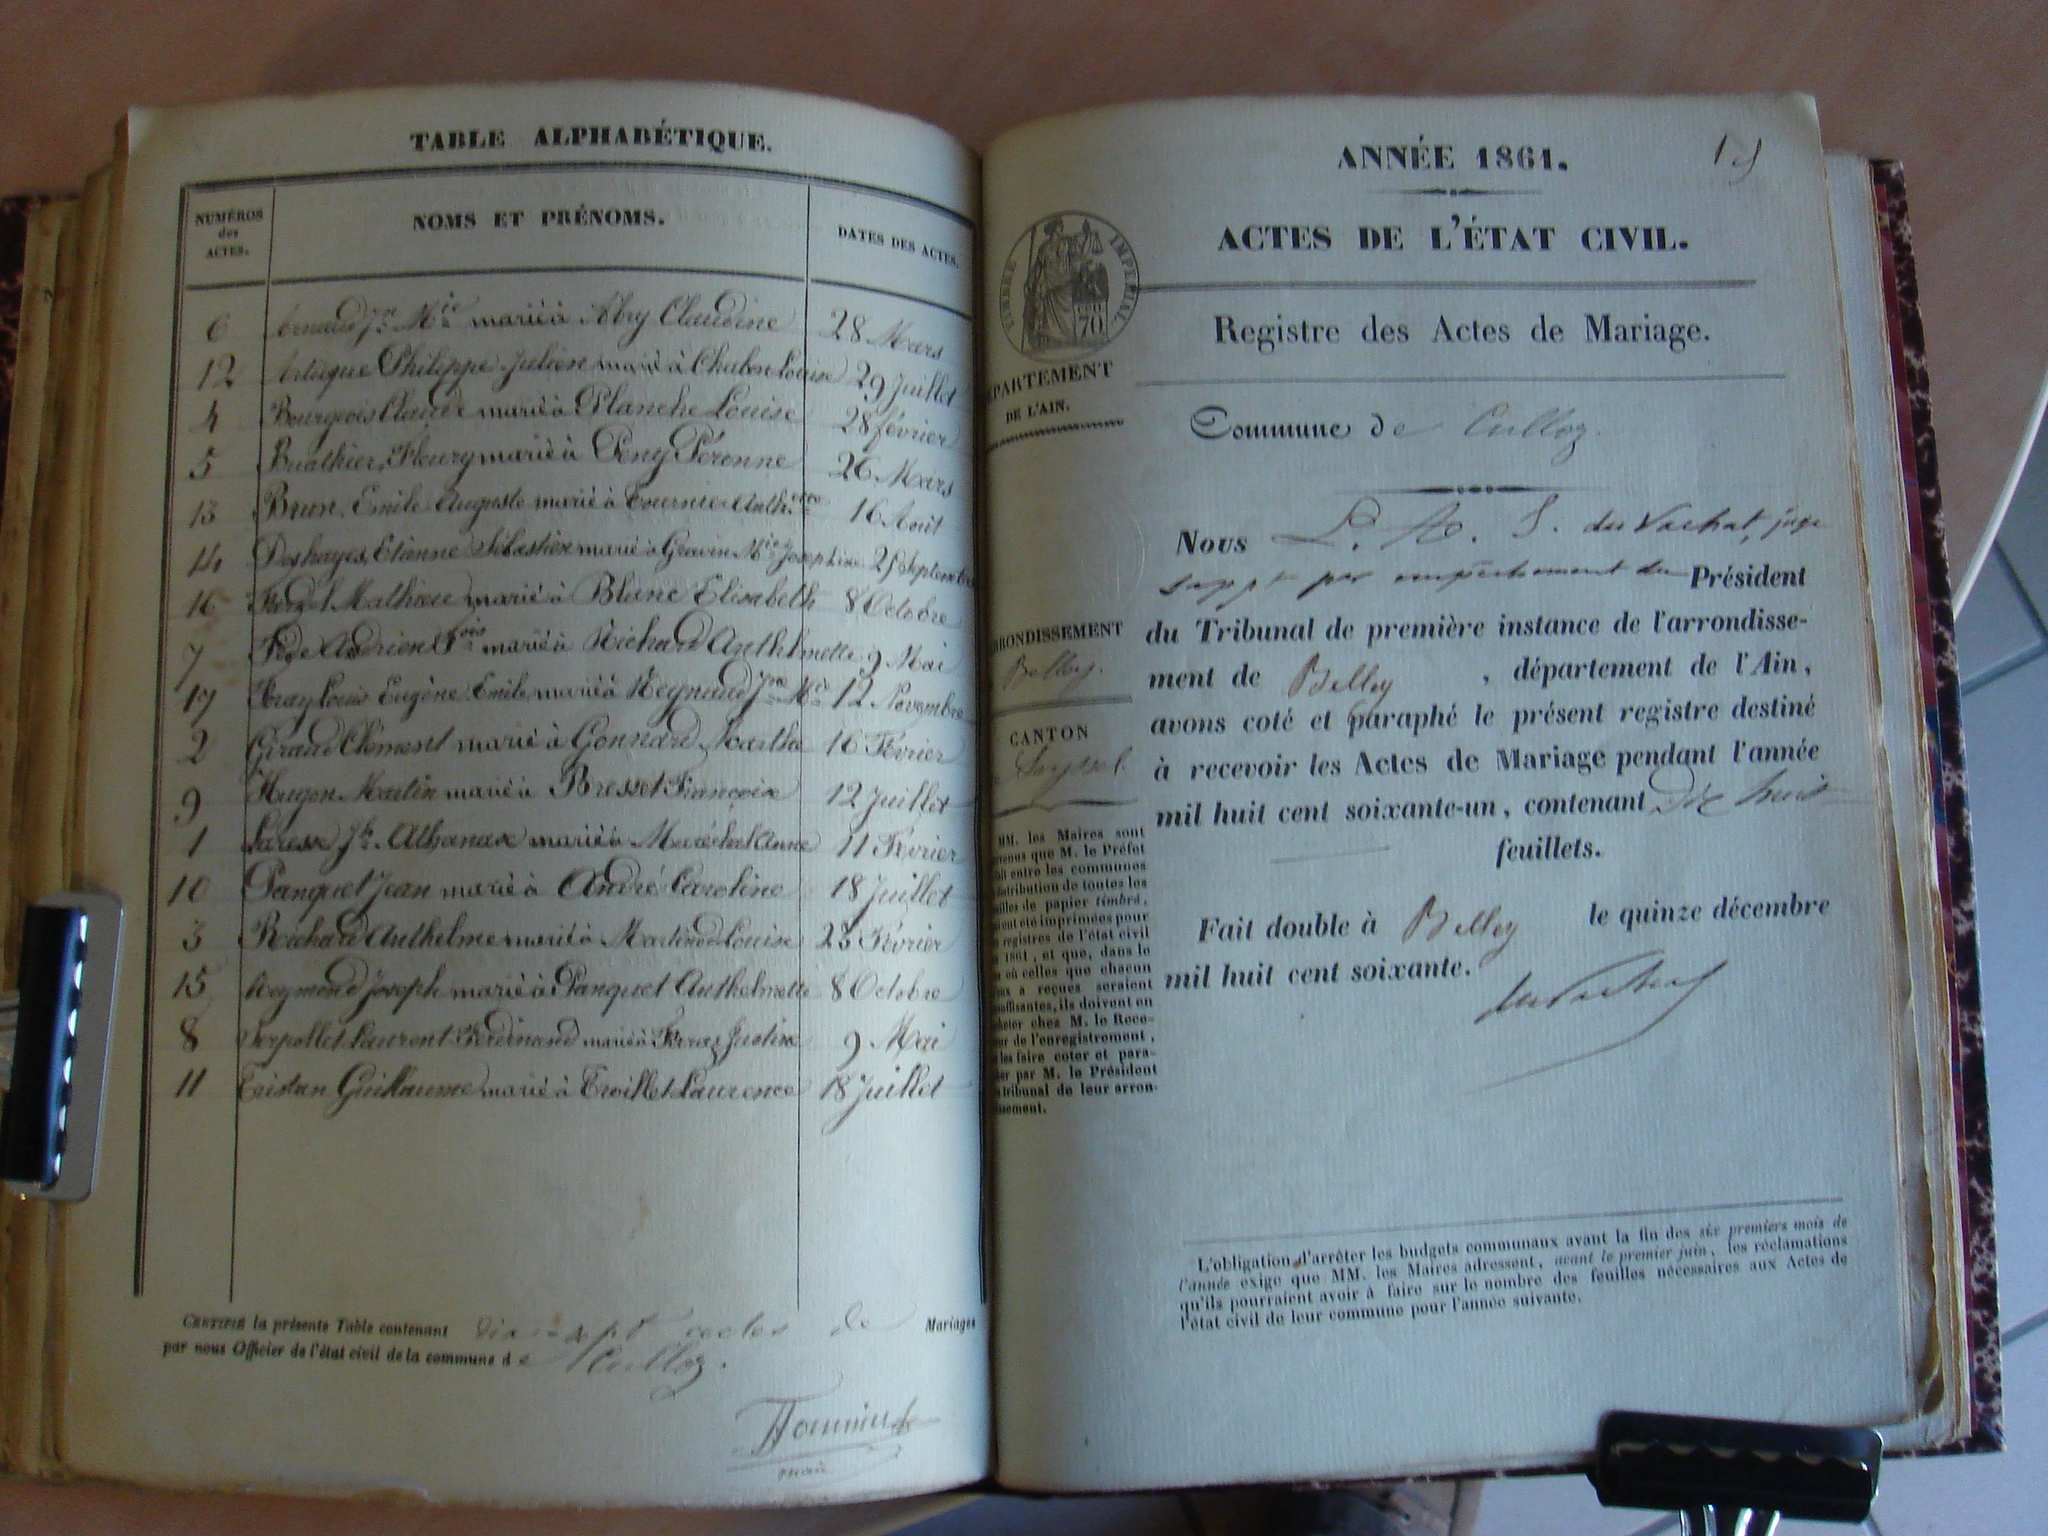 TABLE ALPHABÉTIQUE.
NUMÉROS des ACTES.
NOMS ET PRÉNOMS.
DATES DES ACTES.
6 Jne Mie marié à Abry Claudine 28 Mars
12 Artigue Philippe Julien marié à Chabert Louise 29 Juillet
4 Bourgeois Claude marié à Planche Louise 28 février
5 Buathier, Fleury marié à Peny Péronne 26 Mars
13 Brun Emile Auguste marié à Tournier 16 Août
14 Deshayes, Etienne Sébastien marié à Gravin Mie Josephine 25 Septembre
16 Mathieu marié à Blanc Elisabeth 8 Octobre
7 Adrien Fois marié à Richard Anthelmette 9 Mai
17 Louis Eugène Emile marié à Reynaud Jne Mie 12 Novembre
2 Giraud Clément marié à Gonnard Marthe 16 Février
9 Hugon Martin marié à Bresset Françoise 12 Juillet
1 Jh Athanase marié à Maréchal Anne 11 Février
10 Panquet Jean marié à André Caroline 18 Juillet
3 Richard Anthelme marié à Martinod Louise 23 Février
15 Reymond Joseph marié à Panquet Anthelmette 8 Octobre
8 Serpollet Laurent Ferdinand marié à Justine 9 Mai
11 Tristan Guillaume marié à Troillet Laurence 18 Juillet
CERTIFIÉ la présente Table contenant dix-sept actes de Mariages
par nous Officier de l'état civil de la commune de Culloz.
ANNÉE 1861.
ACTES DE L'ÉTAT CIVIL.
TIMBRE IMPERIAL
70
Registre des Actes de Mariage.
DÉPARTEMENT
DE L'AIN.
Commune de Culloz.
Nous L. A. S. du Vachat, juge
suppt par empêchement du Président
du Tribunal de première instance de l'arrondisse-
ment de Belley, département de l'Ain,
avons coté et paraphé le présent registre destiné
à recevoir les Actes de Mariage pendant l'année
mil huit cent soixante-un, contenant dix huit
feuillets.
Fait double à Belley le quinze décembre
mil huit cent soixante.
du Vachat
ARRONDISSEMENT
Belley.
CANTON
Seyssel.
MM. les Maires sont
que M. le Préfet
entre les communes
distribution de toutes les
de papier timbré,
été imprimées pour
registres de l'état civil
1861, et que, dans le
où celles que chacun
a reçues seraient
ils doivent en
acheter chez M. le Rece-
de l'enregistrement,
les faire coter et para-
par M. le Président
tribunal de leur arron-
dissement.
L'obligation d'arrêter les budgets communaux avant la fin des six premiers mois de
l'année exige que MM. les Maires adressent, avant le premier juin, les réclamations
qu'ils pourraient avoir à faire sur le nombre des feuilles nécessaires aux Actes de
l'état civil de leur commune pour l'année suivante.